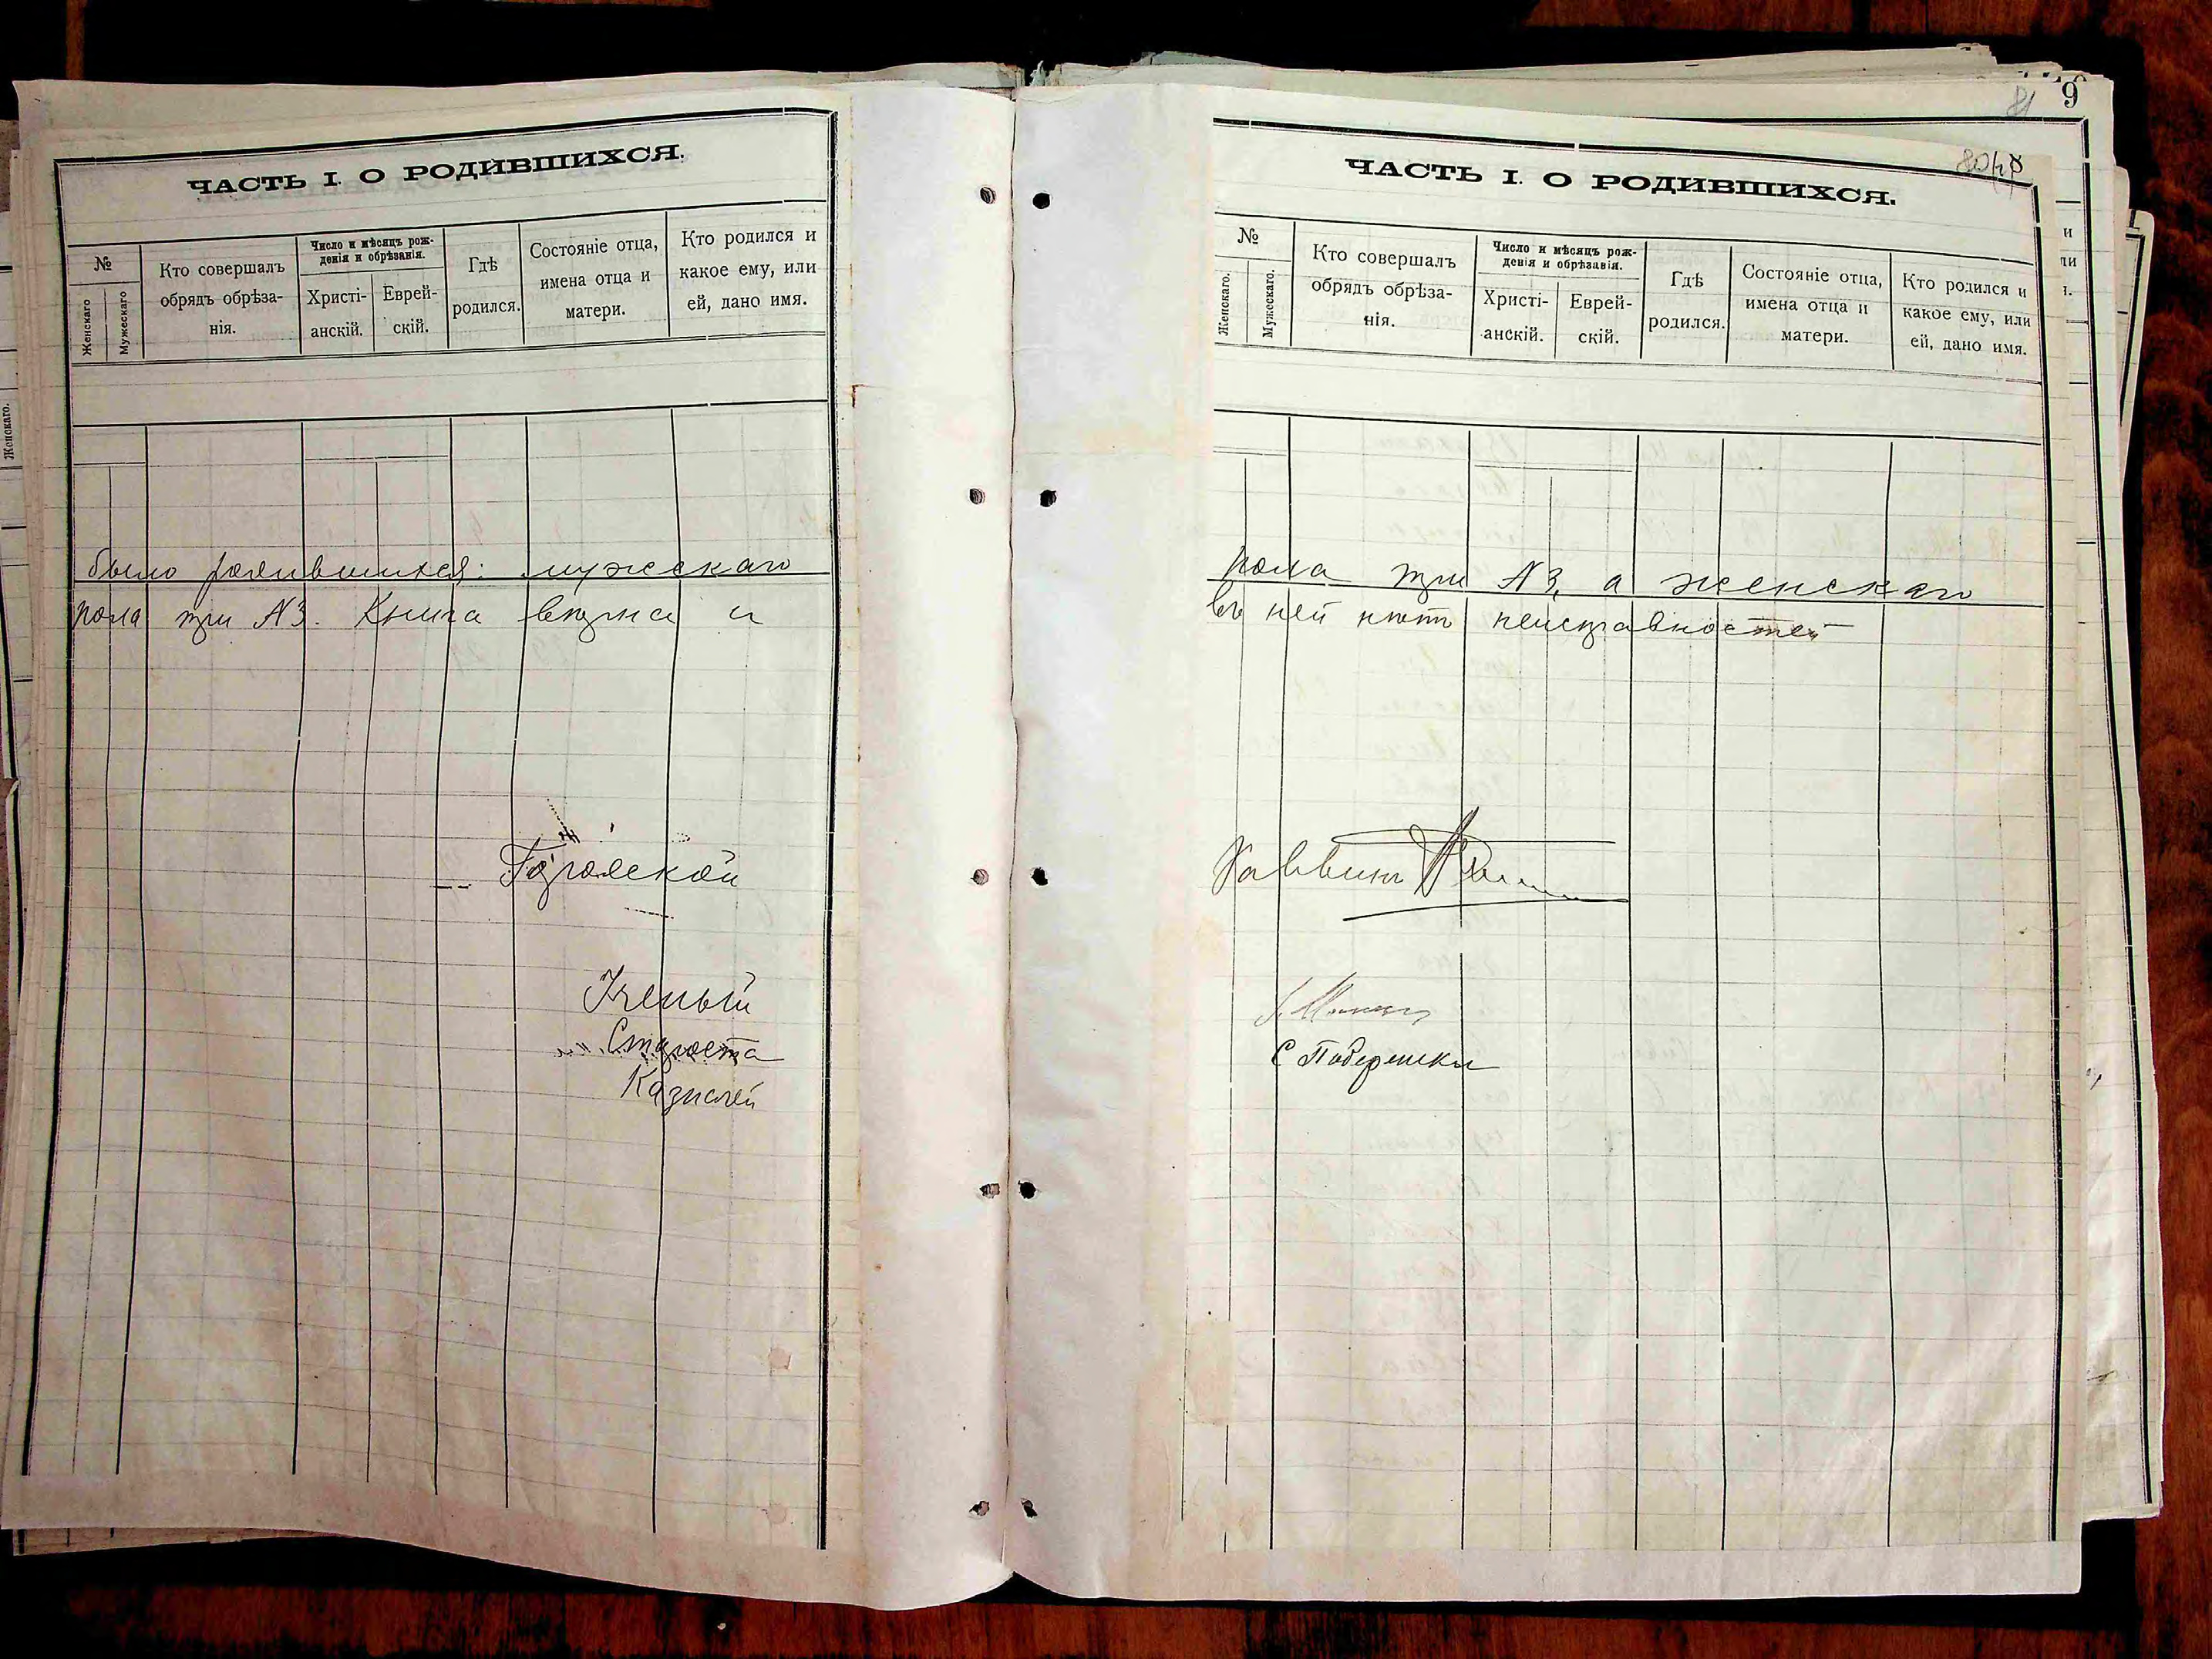 ЧАСТЬ I. О РОДИВШИХСЯ.
№
Женскаго
Мужескаго
Кто совершалъ
обрядъ обрѣза-
нія.
Число и мѣсяцъ рож-
денія и обрѣзанія.
Христі-
анскій.
Еврей-
скій.
Гдѣ
родился.
Состояніе отца,
имена отца и
матери.
Кто родился и
какое ему, или
ей, дано имя.
было родившихся: мужскаго
пола три №3. Книга верна и
Городской
Ученый
Староста
Казначей
9
81
ЧАСТЬ I. О РОДИВШИХСЯ.
№
Женскаго.
Мужескаго.
Кто совершалъ
обрядъ обрѣза-
нія.
Число и мѣсяцъ рож-
денія и обрѣзанія.
Христі-
анскій.
Еврей-
скій.
Гдѣ
родился.
Состояніе отца,
имена отца и
матери.
Кто родился и
какое ему, или
ей, дано имя.
пола три №3, а женскаго
въ ней нѣтъ неисправностей
Раввинъ
Женскаго.